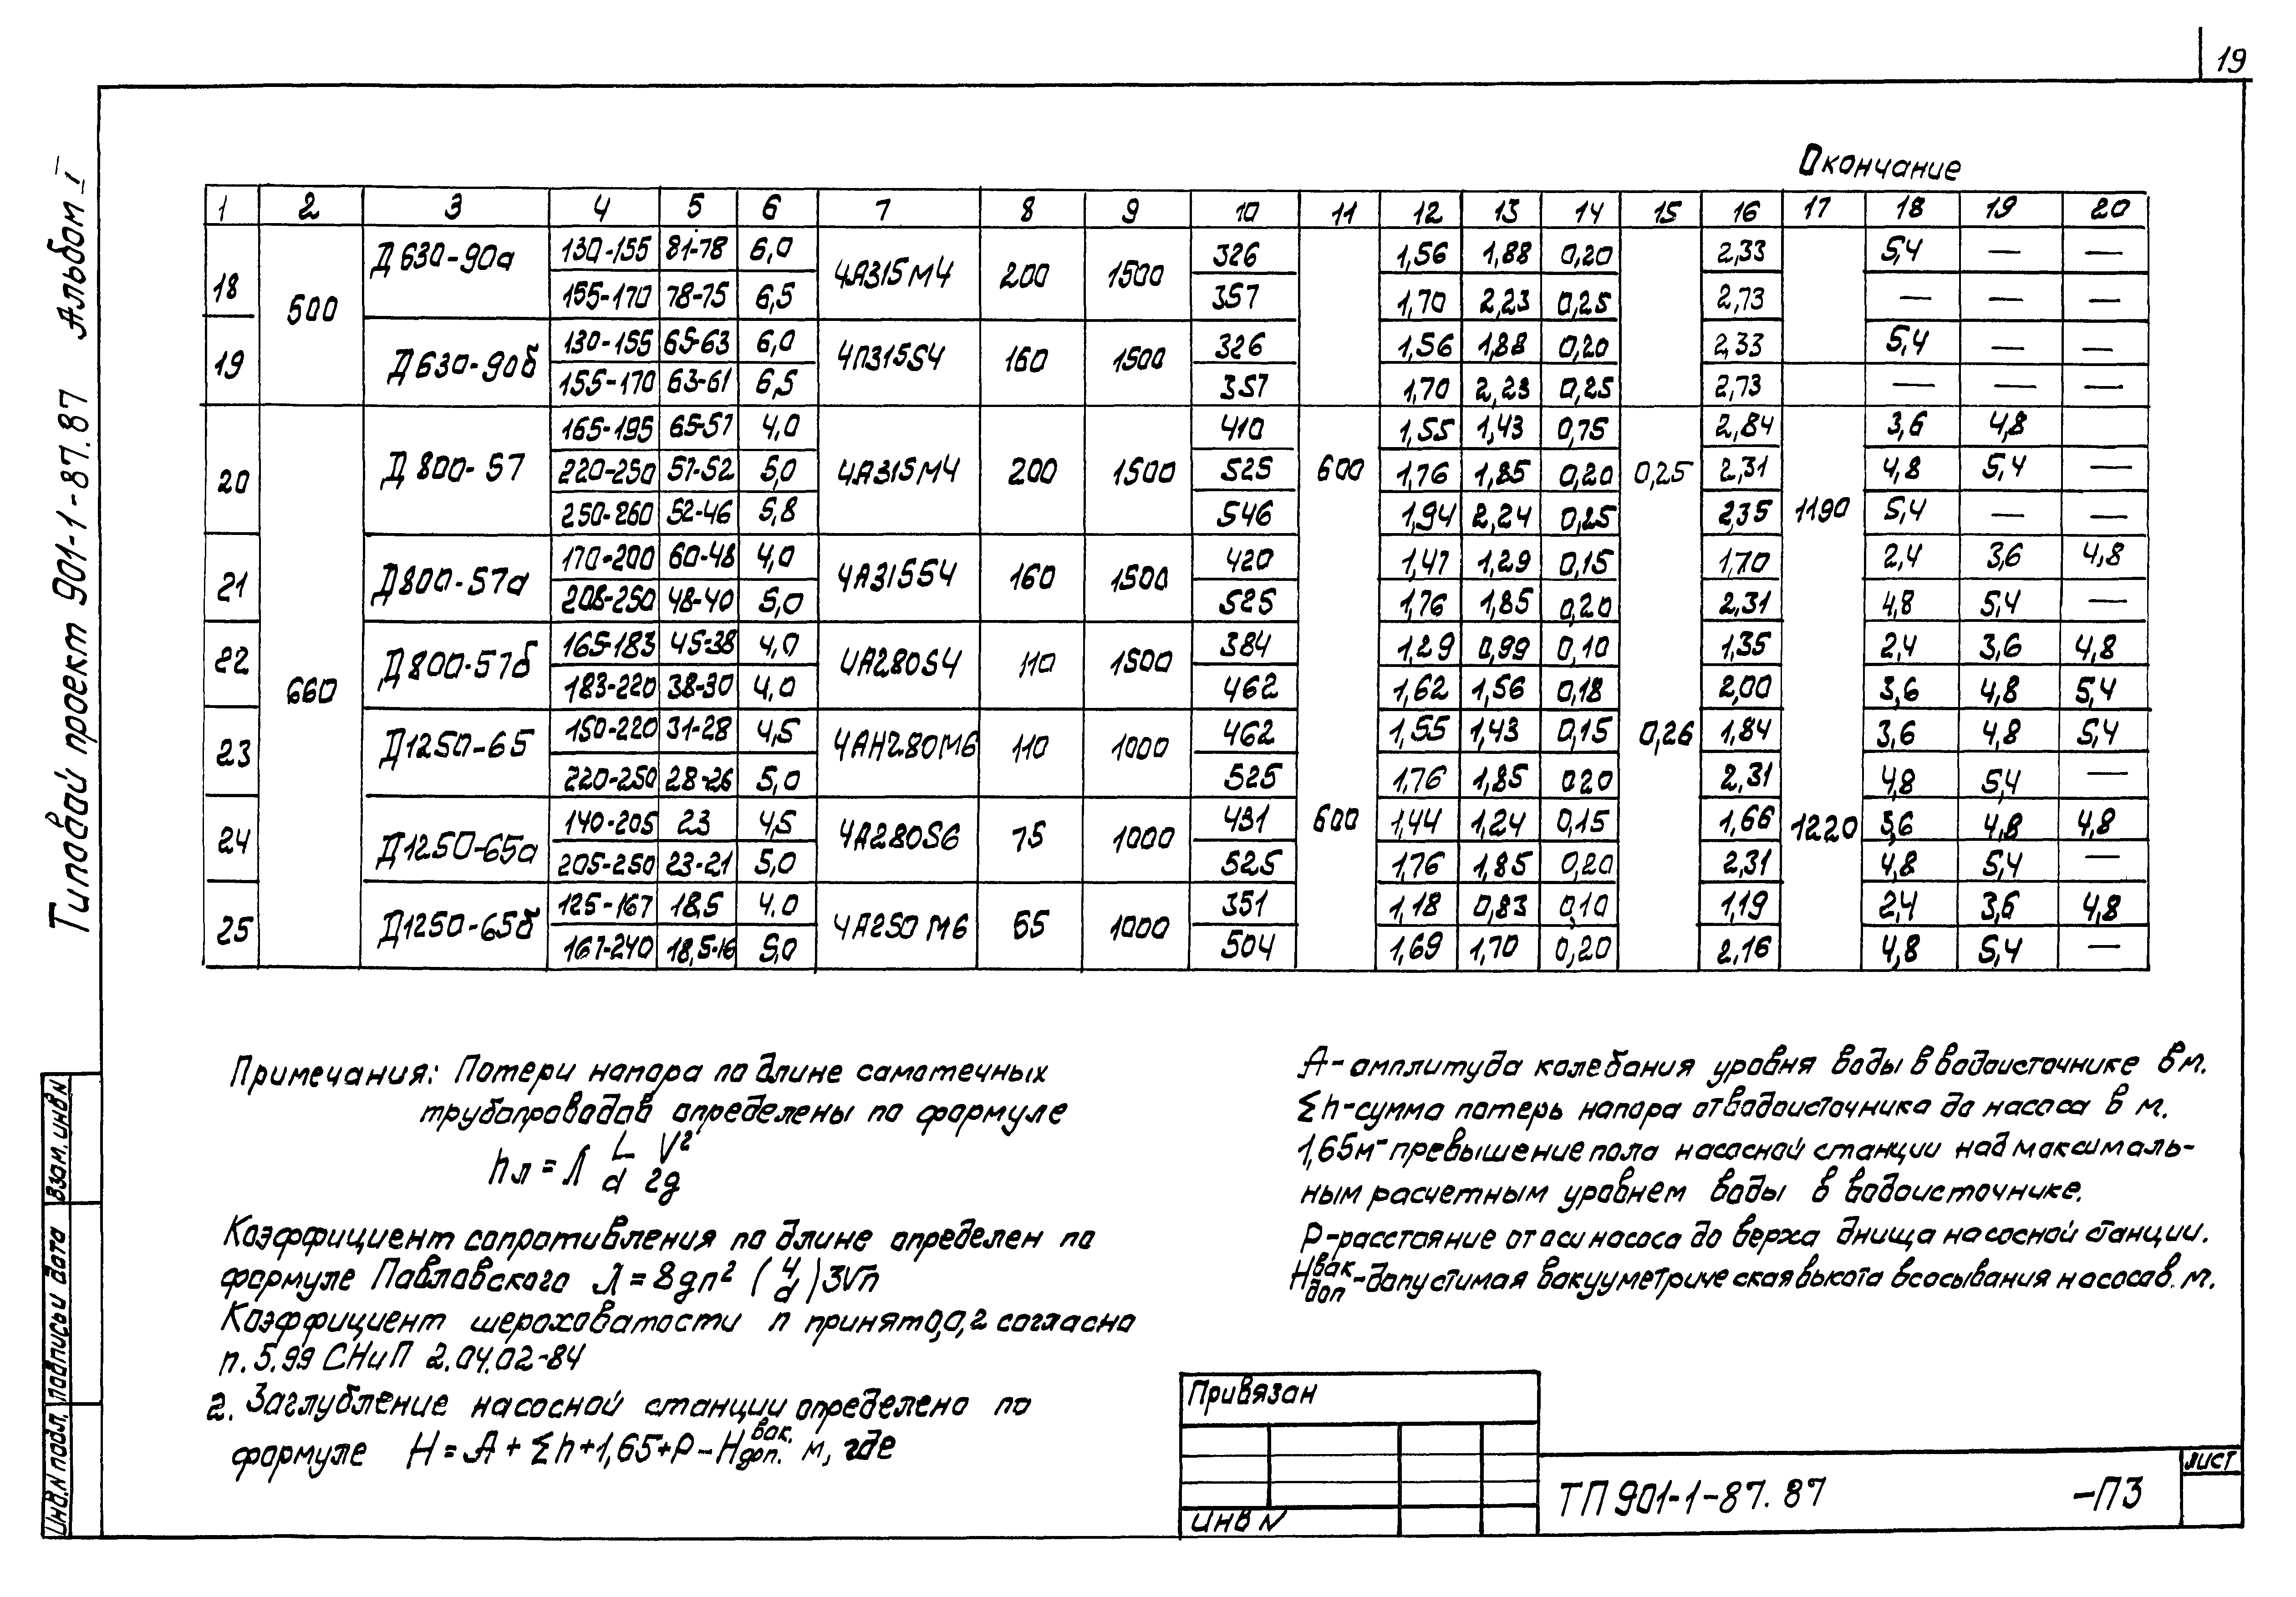 19
Типовой проект 901-1-87.87 Альбом I
Окончание
1 2 3 4 5 6 7 8 9 10 11 12 13 14 15 16 17 18 19 20
18 500 Д630-90а 130-155 81-78 6,0 4А315М4 200 1500 326 1,56 1,88 0,20 2,33 5,4 — —
155-170 78-75 6,5 357 1,70 2,23 0,25 2,73 — — —
19 Д630-90б 130-155 65-63 6,0 4П315S4 160 1500 326 1,56 1,88 0,20 2,33 5,4 — —
155-170 63-61 6,5 357 1,70 2,23 0,25 2,73 — — —
20 660 Д800-57 165-195 65-57 4,0 4А315М4 200 1500 410 600 1,55 1,43 0,75 0,25 2,84 1190 3,6 4,8
220-250 57-52 5,0 525 1,76 1,85 0,20 2,31 4,8 5,4 —
250-260 52-46 5,8 546 1,94 2,24 0,25 2,35 5,4 — —
21 Д800-57а 170-200 60-48 4,0 4А315S4 160 1500 420 1,47 1,29 0,15 1,70 2,4 3,6 4,8
208-250 48-40 5,0 525 1,76 1,85 0,20 2,31 4,8 5,4 —
22 Д800-57б 165-183 45-38 4,0 4А280S4 110 1500 384 1,29 0,99 0,10 1,35 2,4 3,6 4,8
183-220 38-30 4,0 462 1,62 1,56 0,18 2,00 3,6 4,8 5,4
23 Д1250-65 150-220 31-28 4,5 4АН280М6 110 1000 462 600 1,55 1,43 0,15 0,26 1,84 1220 3,6 4,8 5,4
220-250 28-26 5,0 525 1,76 1,85 0,20 2,31 4,8 5,4 —
24 Д1250-65а 140-205 23 4,5 4А280S6 75 1000 431 1,44 1,24 0,15 1,66 3,6 4,8 4,8
205-250 23-21 5,0 525 1,76 1,85 0,20 2,31 4,8 5,4 —
25 Д1250-65б 125-167 18,5 4,0 4А250М6 55 1000 351 1,18 0,83 0,10 1,19 2,4 3,6 4,8
167-240 18,5-16 5,0 504 1,69 1,70 0,20 2,16 4,8 5,4 —
Примечания: Потери напора по длине самотечных
трубопроводов определены по формуле
hл = Λ L/d V²/2g
Коэффициент сопротивления по длине определен по
формуле Павловского Λ = 8gn² (4/d)3√n
Коэффициент шероховатости n принят 0,0,2 согласно
п. 5.99 СНиП 2.04.02-84
2. Заглубление насосной станции определено по
формуле H = A + Σh + 1,65 + P - H вак. доп. м, где
А - амплитуда колебания уровня воды в водоисточнике в м.
Σh - сумма потерь напора от водоисточника до насоса в м.
1,65м - превышение пола насосной станции над максималь-
ным расчетным уровнем воды в водоисточнике.
Р - расстояние от оси насоса до верха днища насосной станции.
H вак доп - допустимая вакууметрическая высота всасывания насоса в. м.
Взам. инв N
Подписьи дата
Инв. N подл.
Привязан
ИНВ N
ТП 901-1-87.87 -ПЗ
Лист